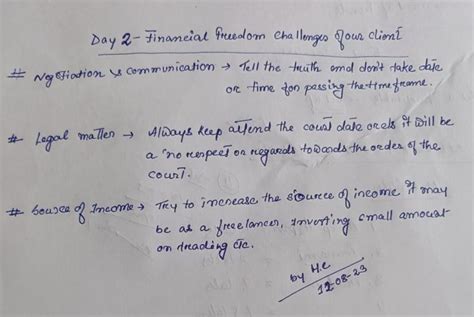 Day 2 - Financial freedom challenges of our client
# Negotiation & communication → Tell the truth and don't take date
or time for passing the time frame.
# Legal matter → Always keep attend the court date or els it will be
a "no respect or regards towards the order of the
court.
# Source of Income → Try to increase the source of income it may
be as a freelancer, Inversting small amount
on trading etc.
by H.C
12-08-23